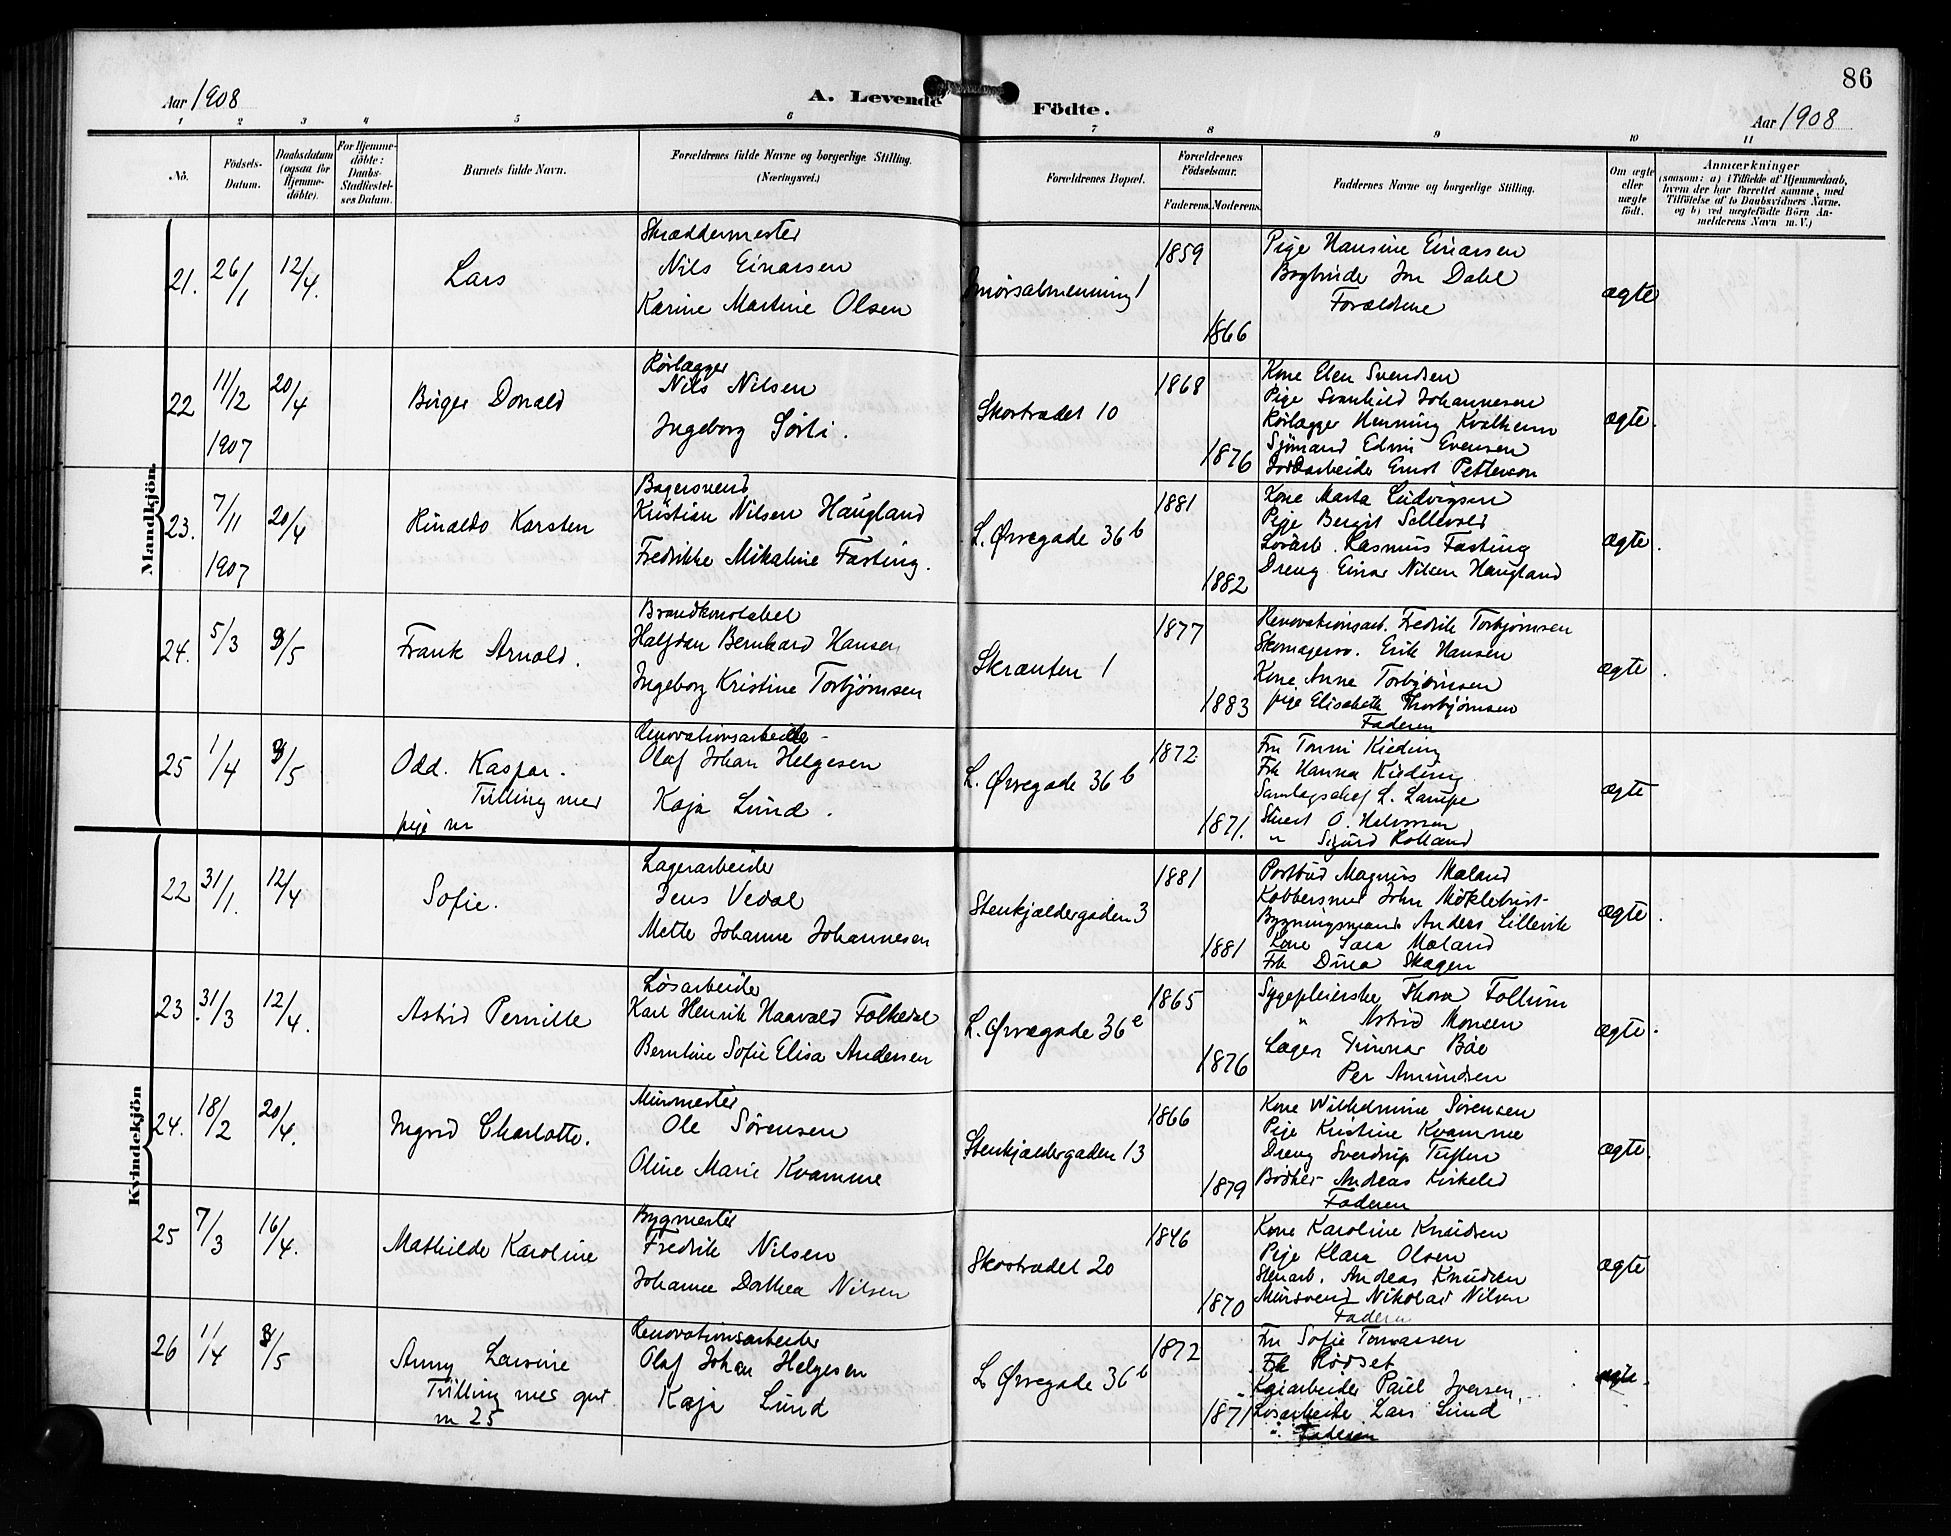 86
Aar 1908
A. Levende Födte.
Aar 1908
1 2 3 4 5 6 7 8 9 10 11
No.
Födsels-Datum.
Daabsdatum (ogsaa for Hjemme-döbte).
For Hjemme-döbte: Daabs-Stadfæstel-ses Datum.
Barnets fulde Navn.
Forældrenes fulde Navne og borgerlige Stilling.
(Næringsvei.)
Forældrenes Bopæl.
Forældrenes Födselsaar.
Faderens. Moderens.
Faddernes Navne og borgerlige Stilling.
Om ægte eller uægte födt.
Anmærkninger
(saasom: a) i Tilfælde af Hjemmedaab,
hvem der har forrettet samme, med
Tilföielse af to Daabsvidners Navne.
og b) ved uægtefödte Börn An-
melderens Navn m. V.)
Mandkjön.
21. 26/1 12/4. Lars
Skræddermester
Nils Einarsen
Karine Martine Olsen
Smörsalmenning 1
1859
1866
Pige Hansine Einarsen
Bogbinder Dahl
Forældrene
ægte
22 11/2 1907 20/4 Birger Donald
Rørlægger
Nils Nilsen
Ingeborg Sørli.
Skostrædet 10
1868
1876
Kone Elen Svendsen
Pige Svanhild Johannesen
Rørlægger Henning Kvalheim
Sjömand Edvin Evensen
Jordarbeider Ernst Petterson
ægte.
23. 7/11 1907 20/4 Rinaldo Karsten
Bagersvend
Kristian Nilsen Haugland
Fredrikke Mikaline Fasting.
L. Øvregade 36 b
1881
1882
Kone Marta Ludvigsen
Pige Bergit Sellevold
Løsarb. Rasmus Fasting
Dreng Einar Nilsen Haugland
ægte.
24. 5/3 3/5 Frank Arnold.
Brandkonstabel
Halfdan Bernhard Hansen
Ingeborg Kristine Torbjørnsen
Skrænten 1
1877
1883
Renovationsarb. Fredrik Torbjørnsen
Skomagersv. Erik Hansen
Kone Anne Torbjørnsen
pige Elisabeth Thorbjørnsen
Faderen
ægte.
25 1/4 3/5 Odd. Kaspar.
Tvilling med
pige nr
Renovationsarbeider
Olaf Johan Helgesen
Kaja Lund.
L. Øvregade 36 b
1872
1871.
Fru Tonni Kieding
Frk Hanna Kieding
Samlagschef L. Lampe
Stuert O. Halvorsen
" Sigurd Rolland
ægte
Kvindekjön
22 31/1. 12/4 Sofie.
Lagerarbeider
Jens Vedal
Mette Johanne Johannesen
Stenkjældergaden 3
1881
1881
Postbud Magnus Mæland
Kobbersmed John Møklebust
Bygningsmand Anders Lillevik
Kone Sara Mæland
Frk Dina Skagen
ægte.
23 31/3 12/4. Astrid Pernille
Løsarbeider
Karl Henrik Haavald Folkedal
Berntine Sofie Elisa Andersen
L. Øvregade 36 e
1865
1876
Sygepleierske Thora Follum
" Astrid Monsen
Læger Gunnar Böe
Per Amundsen
ægte.
24. 18/2 20/4. Ingrid Charlotte.
Murmester
Ole Sørensen
Oline Marie Kvamme
Stenkjældergaden 13
1866
1879
Kone Wilhelmine Sørensen
Pige Kristine Kvamme
Dreng Sverdrup Tuften
Bödker Andreas Kirkeled
Faderen
ægte.
25 7/3 16/4. Mathilde Karoline
Bygmester
Fredrik Nilsen
Johanne Dorthea Nilsen
Skostrædet 20
1846
1870
Kone Karoline Knudsen
Pige Klara Olsen
Stenarb. Andreas Knudsen
Mursvend Nikolai Nilsen
Faderen
ægte
26 1/4 3/5 Anny Lavine
Tvilling med gut
nr 25
Renovationsarbeider
Olaf Johan Helgesen
Kaja Lund
L Øvregade 36 b
1872
1871
Fru Sofie Tomassen
Frk Rödset
Kaiarbeider Paul Iversen
Løsarbeider Lars Lund
" Faderen
ægte.